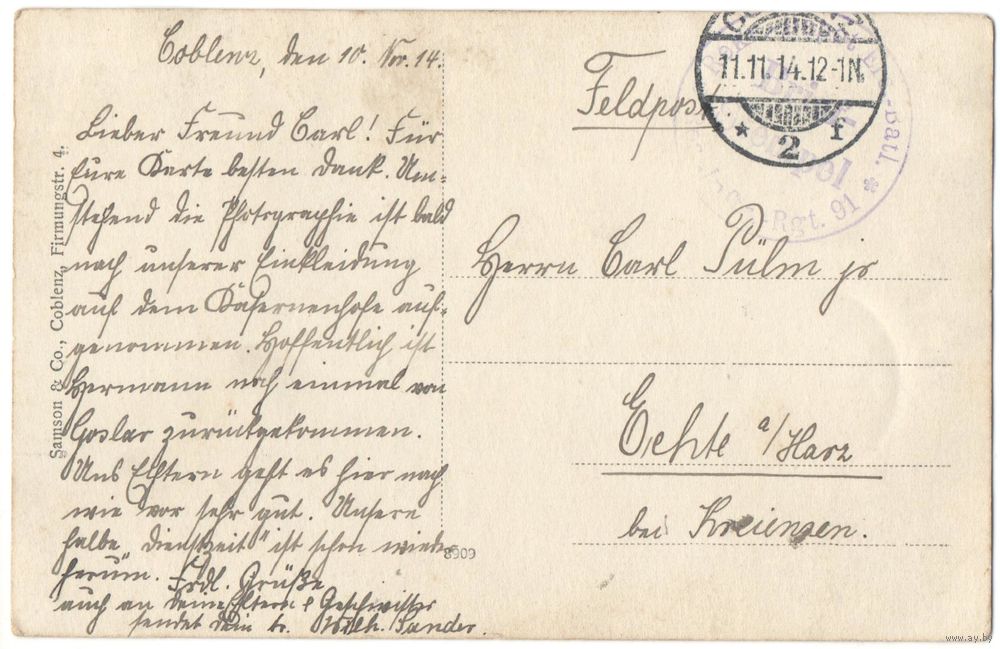 Coblenz, den 10. Nov. 14.
Lieber Freund Carl! Für
Eure Karte besten Dank. Um-
stehend die Photographie ist bald
nach unserer Einkleidung
auf dem Kasernenhofe auf-
genommen. Hoffentlich ist
Hermann noch einmal von
Goslar zurückgekommen.
Uns Elftern geht es hier nach
wie vor sehr gut. Unsere
halbe „Dienstzeit" ist schon wieder
herum. Frdl. Grüße
auch an deine Eltern & Geschwister
sendet dein tr. Wilh. Sander.
Samson & Co., Coblenz, Firmungstr. 4.
8909
Feldpost
11.11.14.12-1N.
* 2 f
Batl. *
Rgt. 91
Herrn Carl Pülm jr
Echte a/Harz
bei Kreiensen.
www.ay.by